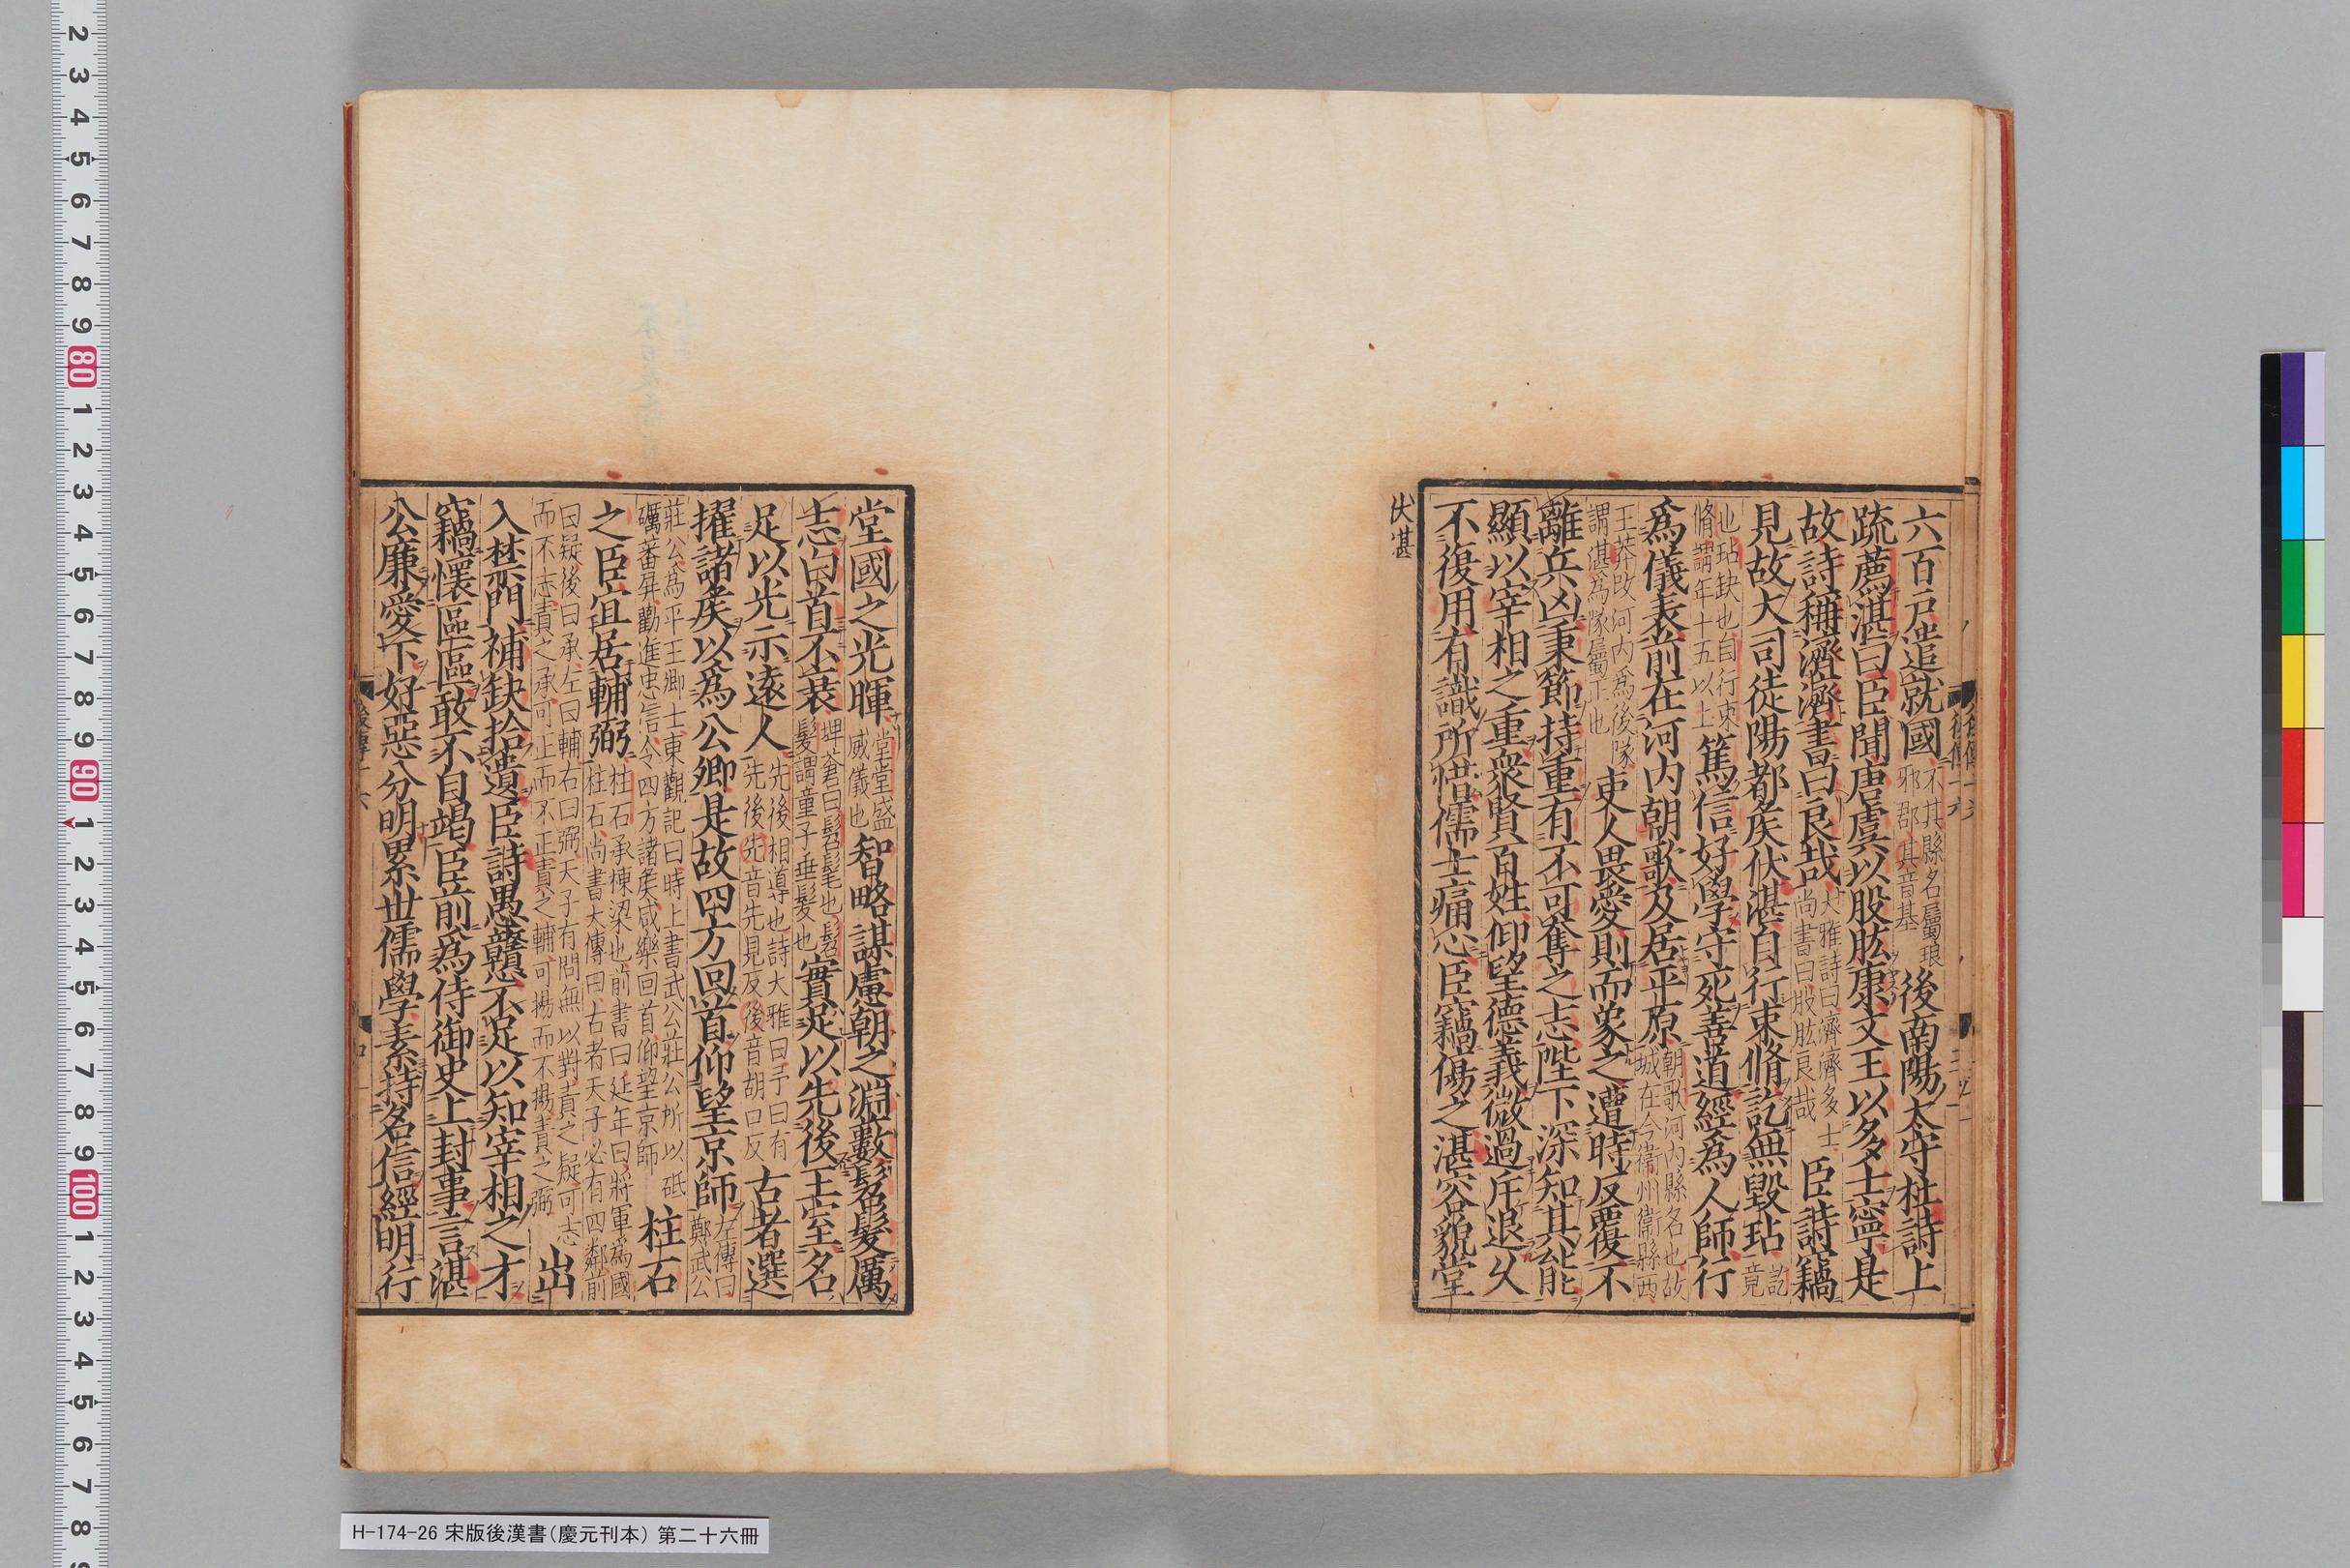 六百戶遣就國不其縣名屬琅邪郡其音基後南陽太守杜詩上
疏薦湛曰臣聞唐虞以股肱康文王以多士寧是
故詩稱濟濟書曰良哉大雅詩曰濟濟多士尚書曰股肱良哉臣詩竊
見故大司徒陽都矦伏湛自行束脩訖無毀玷訖竟
也玷缺也自行束脩謂年十五以上篤信好學守死善道經爲人師行
爲儀表前在河内朝歌及居平原朝歌河内縣名也故城在今衞州衞縣西
王莽改河内爲後隊謂湛爲隊屬正也吏人畏愛則而象之遭時反覆不
離兵凶秉節持重有不可奪之志陛下深知其能
顯以宰相之重衆賢百姓仰望德義微過斥退乆
不復用有識所惜儒士痛心臣竊傷之湛容貌堂
伏湛
堂國之光暉堂堂盛威儀也智略謀慮朝之淵藪髫髮厲
志白首不衰埤蒼曰髫髦也髫髮謂童子垂髮也實足以先後王室名
足以光示遠人先後相導也詩大雅曰予曰有先後先音先見反後音胡口反古者選
擢諸矦以爲公卿是故四方回首仰望京師左傳曰鄭武公
莊公爲平王卿士東觀記曰時上書武公莊公所以砥礪蕃屏勸進忠信令四方諸矦咸樂回首仰望京師柱石
之臣宜居輔弼柱石承棟梁也前書曰延年曰將軍爲國柱石尚書大傳曰古者天子必有四鄰前
曰疑後曰承左曰輔右曰弼天子有問無以對責之疑可志而不志責之承可正而不正責之輔可揚而不揚責之弼出
入禁門補缺拾遺臣詩愚戇不足以知宰相之才
竊懷區區敢不自竭臣前爲侍御史上封事言湛
公廉愛下好惡分明累世儒學素持名信經明行
H-174-26 宋版後漢書(慶元刊本) 第二十六冊